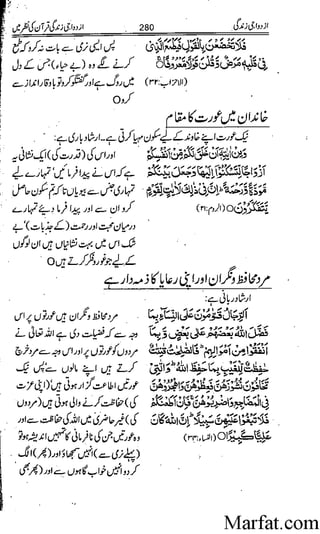 ازدواجی زندگی
280
ازدواجی زندگی قرآن کی نظر میں
فَلَا تَخْضَعْنَ بِالْقَوْلِ فَيَطْمَعَ الَّذِي
فِي قَلْبِهِ مَرَضٌ وَّقُلْنَ قَوْلًا مَّعْرُوفًا
(الاحزاب: ۳۲)
پس ایسی نرمی سے بات نہ کرو کہ طمع
کرنے لگے وہ (بے حیاء) جس کے دل
میں روگ ہے اور گفتگو کرو تو باوقار انداز سے
کرو
خاندان میں عورت کا مقام
نیک عورت اپنے خاوند کے لیے سکون مہیا کرتی ہے۔ ارشاد باری ہے:
وَمِنْ اٰيٰتِهٖ اَنْ خَلَقَ لَكُمْ مِّنْ اَنْفُسِكُمْ
اَزْوَاجًا لِّتَسْكُنُوْٓا اِلَيْهَا وَجَعَلَ بَيْنَكُمْ
مَّوَدَّةً وَّرَحْمَةً ؕ اِنَّ فِيْ ذٰلِكَ لَاٰيٰتٍ لِّقَوْمٍ
يَّتَفَكَّرُوْنَ (الروم: ۲۱)
اور اس کی (قدرت کی) ایک نشانی یہ
ہے کہ اس نے پیدا فرمائیں تمہارے لیے
تمہاری جنس سے بیویاں تاکہ تم سکون حاصل
کرو ان سے اور پیدا فرما دیئے تمہارے
درمیان محبت اور رحمت (کے جذبات) بے
شک اس میں بہت نشانیاں ہیں ان لوگوں
کے لیے جو غور و فکر کرتے ہیں
مرد محافظ و نگران اور اپنی رعایا کا ذمہ دار ہے
ارشاد ربانی ہے:
اَلرِّجَالُ قَوّٰمُوْنَ عَلَى النِّسَآءِ بِمَا
فَضَّلَ اللّٰهُ بَعْضَهُمْ عَلٰى بَعْضٍ وَّبِمَآ
اَنْفَقُوْا مِنْ اَمْوَالِهِمْ ؕ فَالصّٰلِحٰتُ قٰنِتٰتٌ
حٰفِظٰتٌ لِّلْغَيْبِ بِمَا حَفِظَ اللّٰهُ ؕ وَالّٰتِيْ
تَخَافُوْنَ نُشُوْزَهُنَّ فَعِظُوْهُنَّ وَاهْجُرُوْهُنَّ
فِي الْمَضَاجِعِ وَاضْرِبُوْهُنَّ ۚ فَاِنْ اَطَعْنَكُمْ
فَلَا تَبْغُوْا عَلَيْهِنَّ سَبِيْلًا ؕ اِنَّ اللّٰهَ كَانَ
عَلِيًّا كَبِيْرًا (النساء: ۳۴)
مرد محافظ و نگران ہیں عورتوں پر اس
وجہ سے کہ فضیلت دی ہے اللہ تعالیٰ نے
مردوں کو عورتوں پر اور اس وجہ سے مرد خرچ
کرتے ہیں اپنے مالوں سے پس نیک
عورتیں اطاعت گزار ہوتی ہیں (اپنی عزت
کی) حفاظت کرنے والی ہوتی ہیں (مردوں
کی) غیر حاضری میں اللہ کی حفاظت سے اور
وہ عورتیں جن کی نافرمانی کا تمہیں اندیشہ ہو تو
(پہلے نرمی سے) انہیں سمجھاؤ اور (پھر) الگ
کر دو انہیں خواب گاہوں سے اور (پھر بھی
Marfat.com